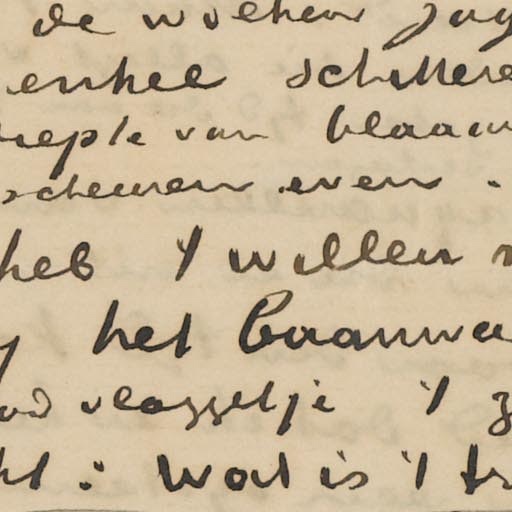 de wolken jag
enkel schittere
diepte van blaauw
schemeren even.
heb 't willen m
het baanwa
vlaggetje 't z
: Wat is 't tr